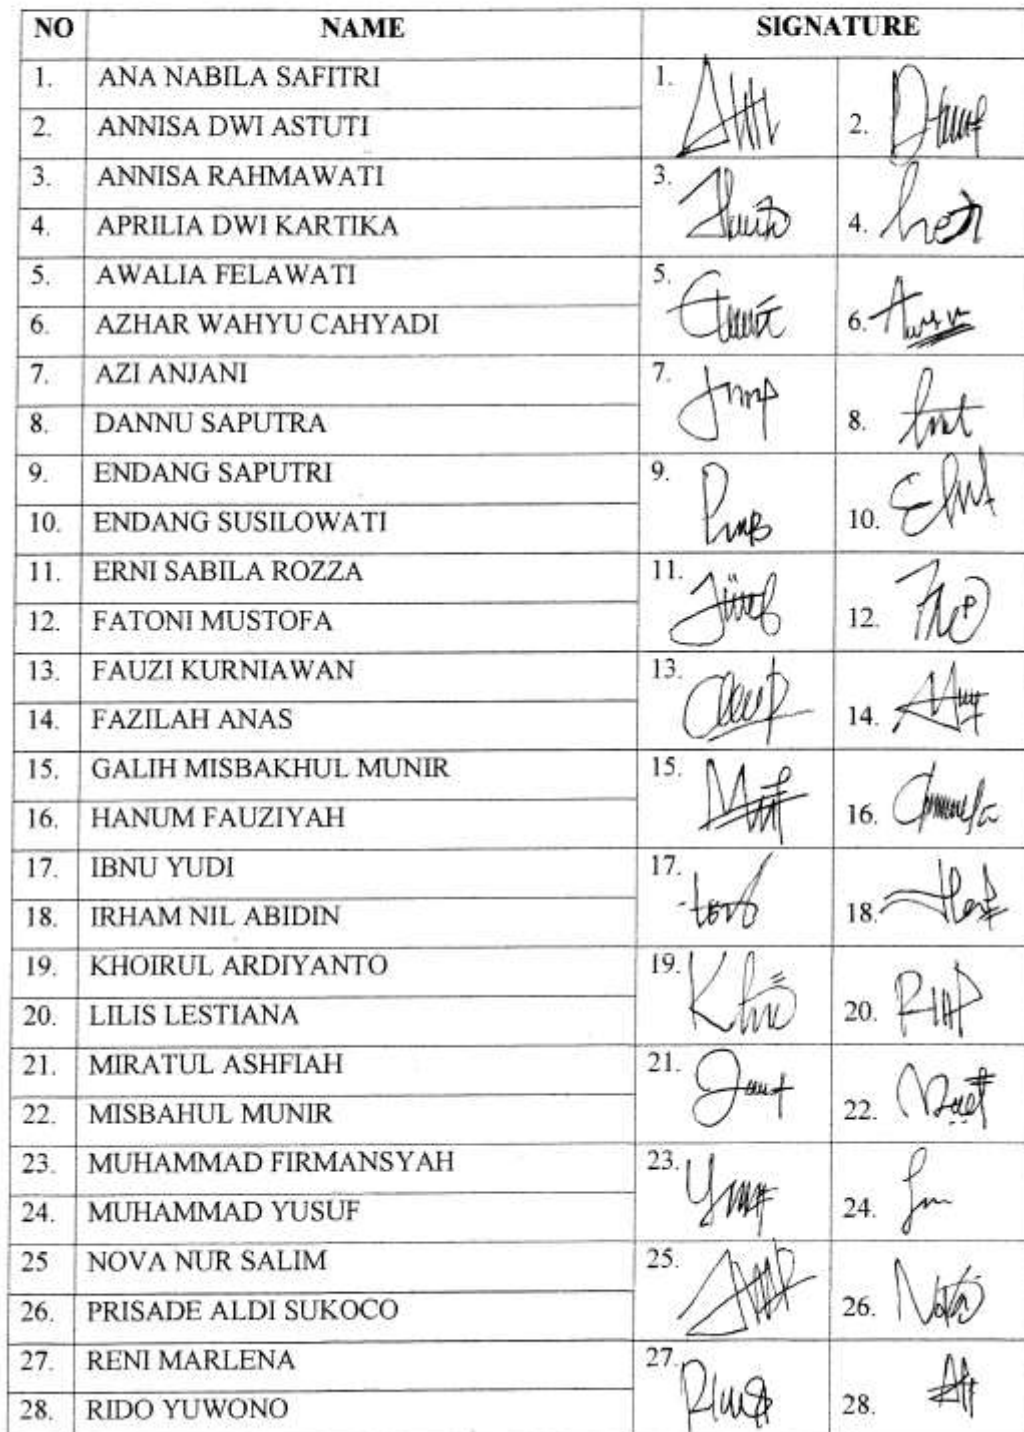 NO NAME SIGNATURE
1. ANA NABILA SAFITRI 1.
2. ANNISA DWI ASTUTI 2.
3. ANNISA RAHMAWATI 3.
4. APRILIA DWI KARTIKA 4.
5. AWALIA FELAWATI 5.
6. AZHAR WAHYU CAHYADI 6.
7. AZI ANJANI 7.
8. DANNU SAPUTRA 8.
9. ENDANG SAPUTRI 9.
10. ENDANG SUSILOWATI 10.
11. ERNI SABILA ROZZA 11.
12. FATONI MUSTOFA 12.
13. FAUZI KURNIAWAN 13.
14. FAZILAH ANAS 14.
15. GALIH MISBAKHUL MUNIR 15.
16. HANUM FAUZIYAH 16.
17. IBNU YUDI 17.
18. IRHAM NIL ABIDIN 18.
19. KHOIRUL ARDIYANTO 19.
20. LILIS LESTIANA 20.
21. MIRATUL ASHFIAH 21.
22. MISBAHUL MUNIR 22.
23. MUHAMMAD FIRMANSYAH 23.
24. MUHAMMAD YUSUF 24.
25 NOVA NUR SALIM 25.
26. PRISADE ALDI SUKOCO 26.
27. RENI MARLENA 27.
28. RIDO YUWONO 28.